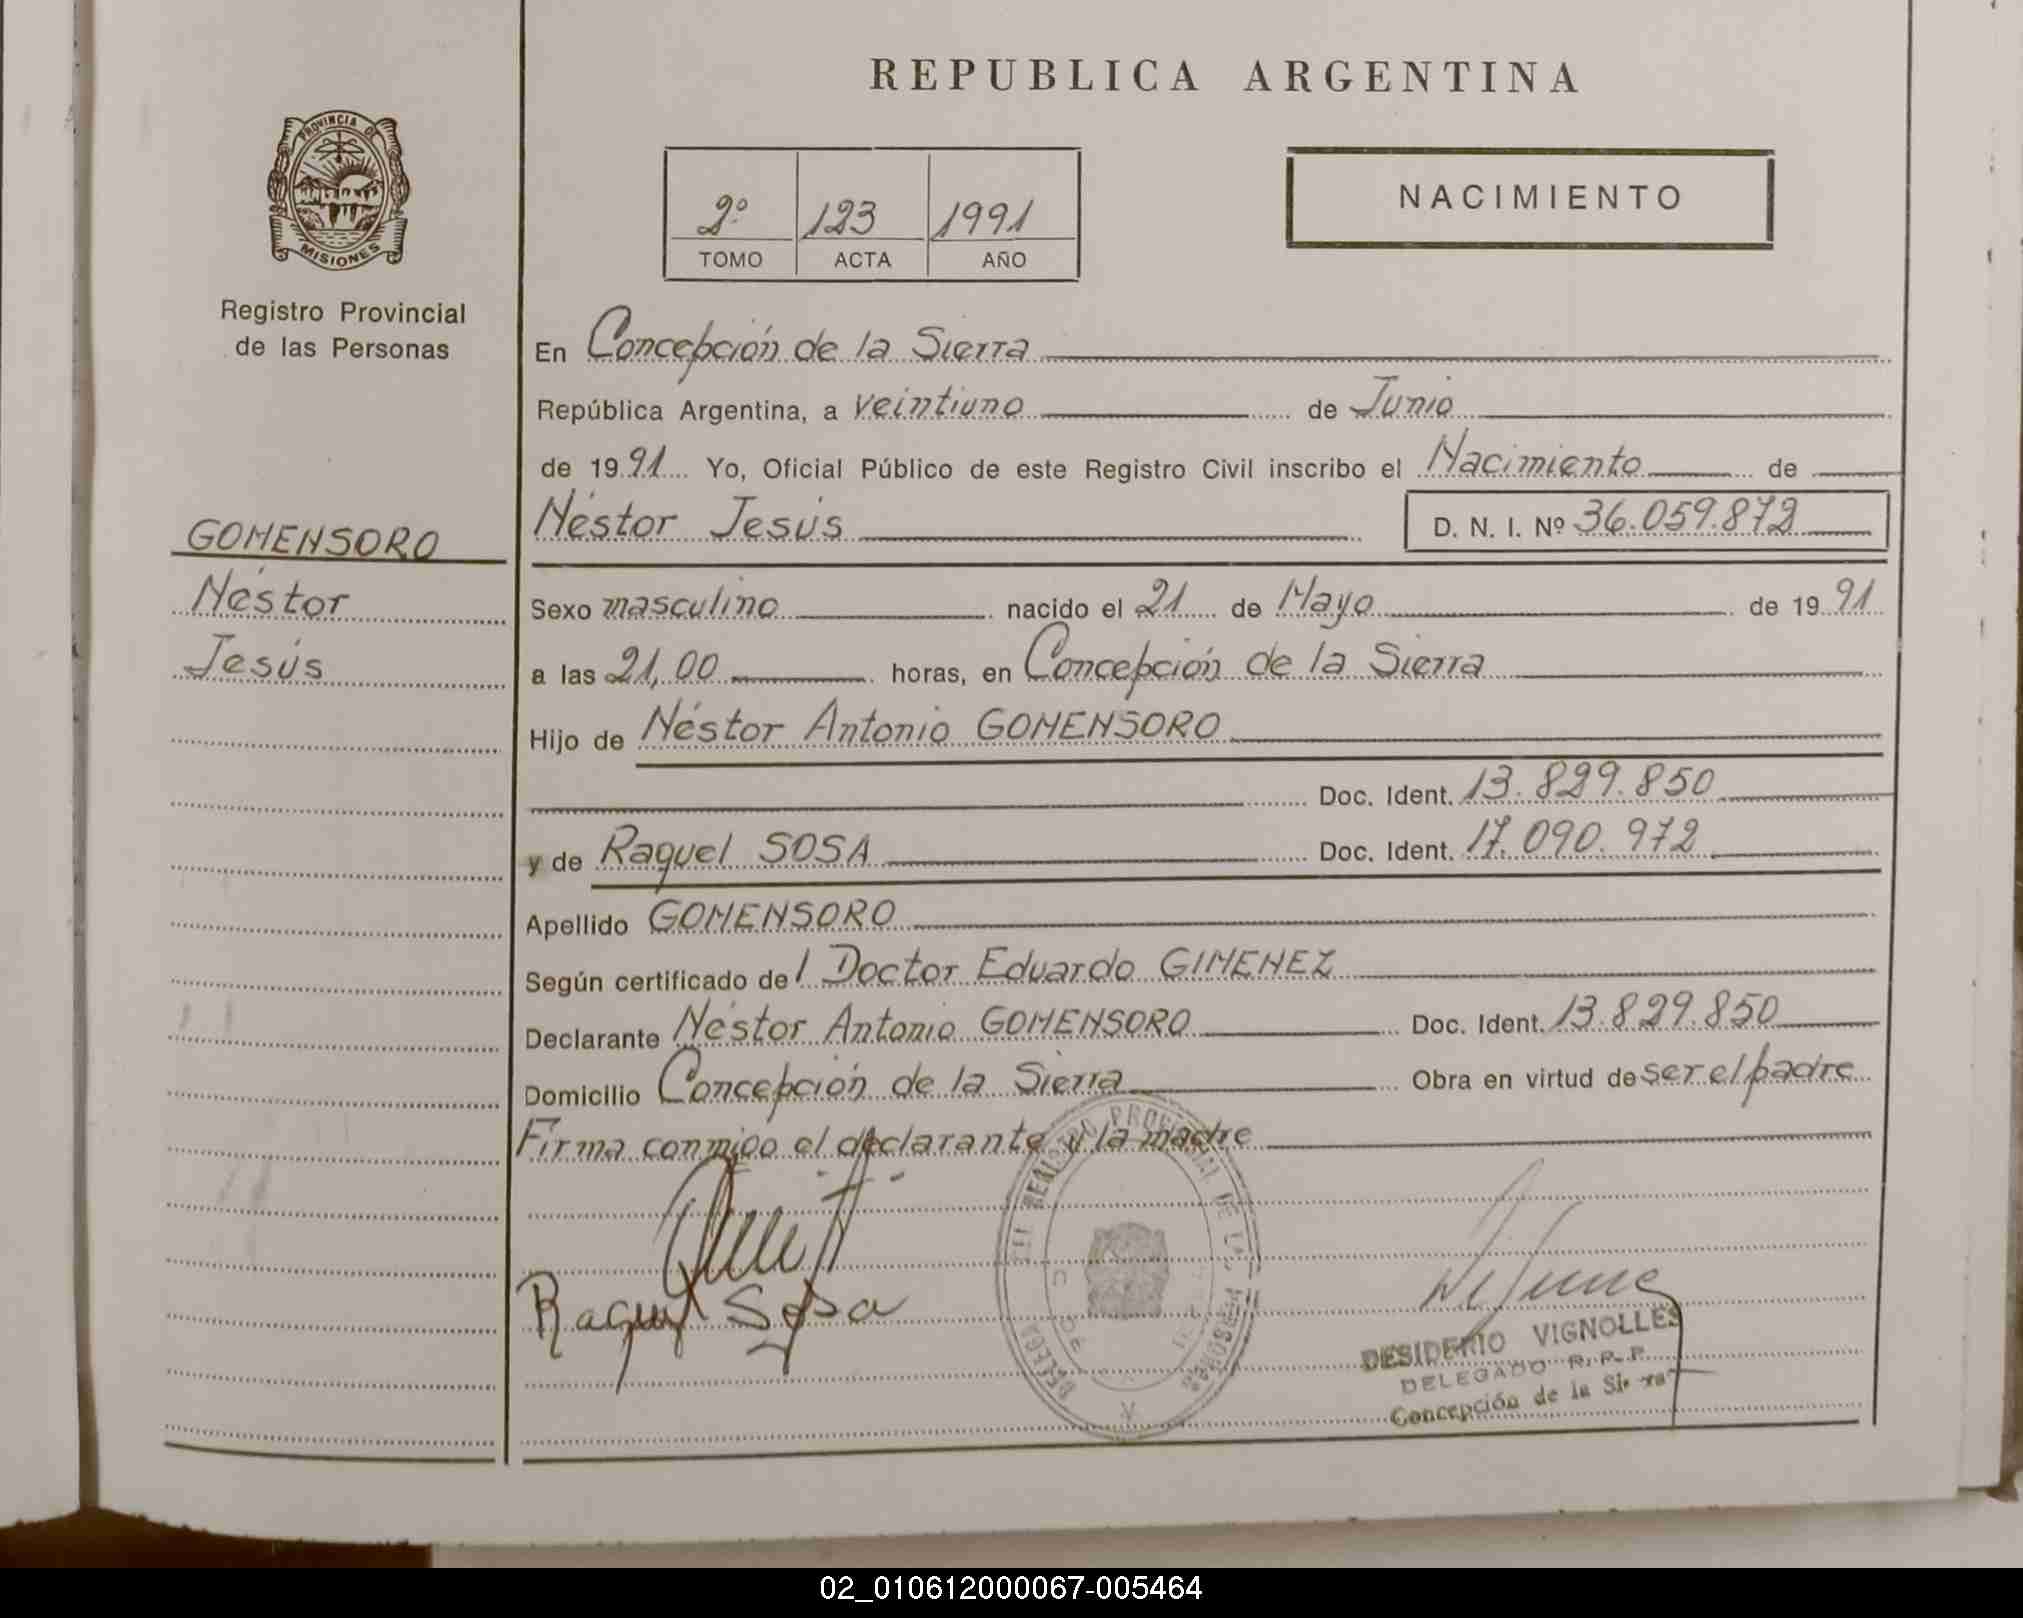 REPUBLICA ARGENTINA
PROVINCIA DE
MISIONES
Registro Provincial
de las Personas
2º 123 1991
TOMO ACTA AÑO
NACIMIENTO
En Concepción de la Sierra
República Argentina, a veintiuno de Junio
de 1991 Yo, Oficial Público de este Registro Civil inscribo el Nacimiento de
Néstor Jesús D. N. I. Nº 36.059.872
GOMENSORO
Néstor
Jesús
Sexo masculino nacido el 21 de Mayo de 1991
a las 21,00 horas, en Concepción de la Sierra
Hijo de Néstor Antonio GOMENSORO
Doc. Ident. 13.829.850
y de Raquel SOSA Doc. Ident. 17.090.972
Apellido GOMENSORO
Según certificado del Doctor Eduardo GIMENEZ
Declarante Néstor Antonio GOMENSORO Doc. Ident. 13.829.850
Domicilio Concepción de la Sierra Obra en virtud de ser el padre
Firma conmigo el declarante y la madre
Raquel Sosa
REGISTRO PROVINCIAL DE LAS PERSONAS
DESIDERIO VIGNOLLES
DELEGADO R.P.P.
Concepción de la Sierra
02_010612000067-005464